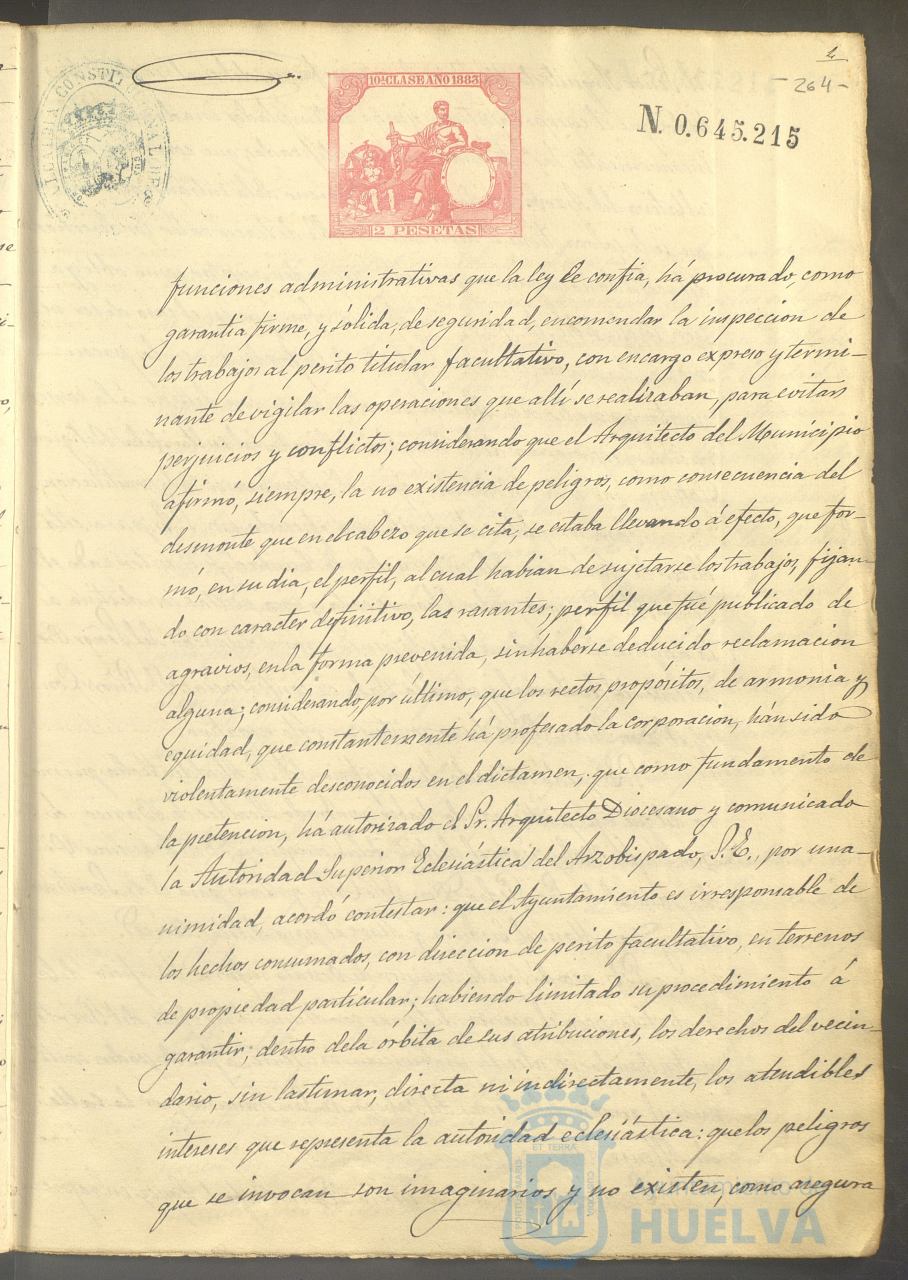 264
N. 0.645.215
10ª CLASE AÑO 1883
2 PESETAS
funciones administrativas que la ley le confia, há procurado, como
garantia firme, y sólida, de seguridad, encomendar la inspeccion de
los trabajos al perito titular facultativo, con encargo expreso y termi-
nante de vigilar las operaciones que allí se realizaban, para evitar
perjuicios y conflictos; considerando que el Arquitecto del Municipio
afirmó, siempre, la no existencia de peligros, como consecuencia del
desmonte que en el cabezo que se cita, se estaba llevando á efecto, que for-
mó, en su dia, el perfil, al cual habian de sujetarse los trabajos, fijan-
do con caracter definitivo, las rasantes; perfil que fué publicado de
agravios, en la forma prevenida, sin haberse deducido reclamacion
alguna; considerando, por último, que los rectos propósitos, de armonia y
equidad, que constantemente há profesado la corporacion, hán sido
violentamente desconocidos en el dictamen, que como fundamento de
la pretencion, há autorizado el Sr. Arquitecto Diocesano y comunicado
la Autoridad Superior Eclesiástica del Arzobispado, S. E., por una-
nimidad, acordó contestar: que el Ayuntamiento es irresponsable de
los hechos consumados, con direccion de perito facultativo, en terrenos
de propiedad particular; habiendo limitado su procedimiento á
garantir, dentro de la órbita de sus atribuciones, los derechos del vecin-
dario, sin lastimar, directa ni indirectamente, los atendibles
intereses que representa la autoridad eclesiástica: que los peligros
que se invocan son imaginarios y no existen, como asegura
Ayuntamiento de
HUELVA